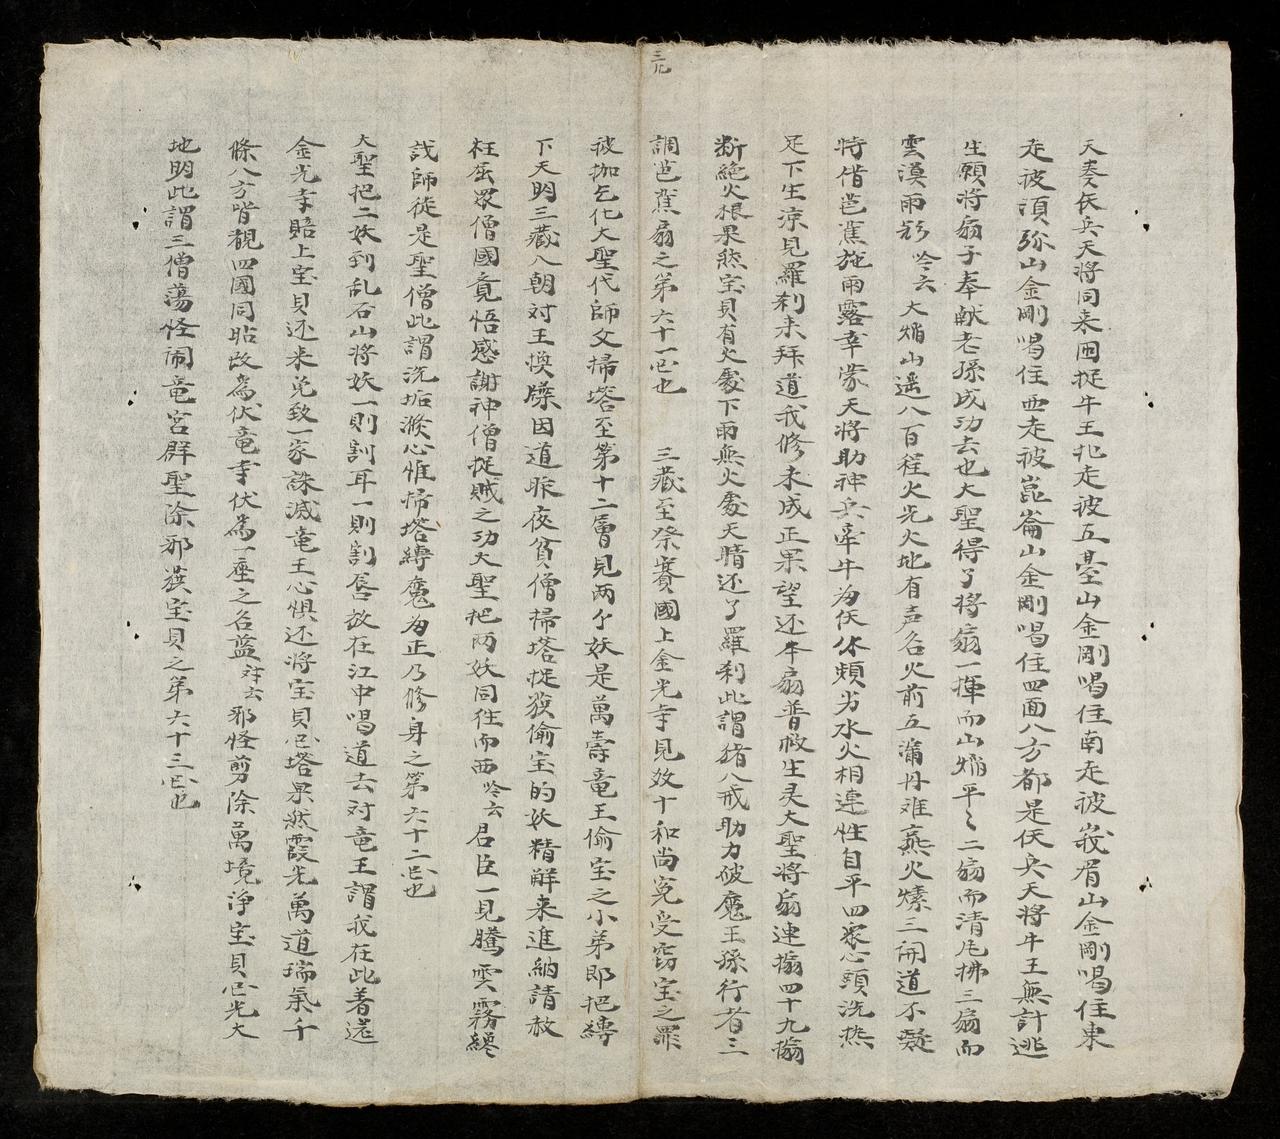 三九
天奏仸兵天將同来囲捉牛王北走被五䑓山金剛喝住南走被峩眉山金剛喝住東
走被湏弥山金剛喝住西走被崑崙山金剛喝住四面八方都是仸兵天將牛王無計逃
生願将扇子奉献老孫成功去也大聖得了将扇一揮而山焔平〻二扇而清凨拂三扇而
雲漠雨 吟云大焔山遥八百程火光火地有声名火前五漏丹难熬火燎三関道不
特借芭蕉施雨露幸蒙天將助神兵牵牛为仸休頼劣水火相連性自平四衆心頭洗热
足下生凉見羅刹来拜道我修未成正果望还本扇普救生灵大聖将扇連搧四十九搧
断絶火根果然宝貝有火處下雨無火處天晴还了羅刹此謂猪八戒助力破魔王孫行者三
調芭蕉扇之第六十一也 三藏至祭賽國上金光寺見数十和尚寃受窃宝之罪
被枷乞化大聖代師父掃塔至第十二層見两个妖是萬壽竜王偷宝之小弟即把縛
下天明三藏入朝对王換牒因道昨夜貧僧掃塔捉獲偷宝的妖精觧来進納請赦
枉屈眾僧國竟悟感謝神僧捉賊之功大聖把两妖同往而西吟云君臣一見騰雲霧纔
識師徒是聖僧此謂洗垢滌心惟掃塔縛魔为正乃修身之第六十二也
大聖把二妖到乱石山将妖一則割耳一則割唇放在江中唱道去对竜王謂我在此着送
金光寺賠上宝貝还来免致一家誅滅竜王心惧还将宝貝塔果然霞光萬道瑞氣千
條八方皆覩四國同瞻改為伏竜寺伏為一座之名藍詩云邪怪剪除萬境浄宝貝光大
地明此謂三僧蕩怪闹竜宫群聖除邪獲宝貝之第六十三也